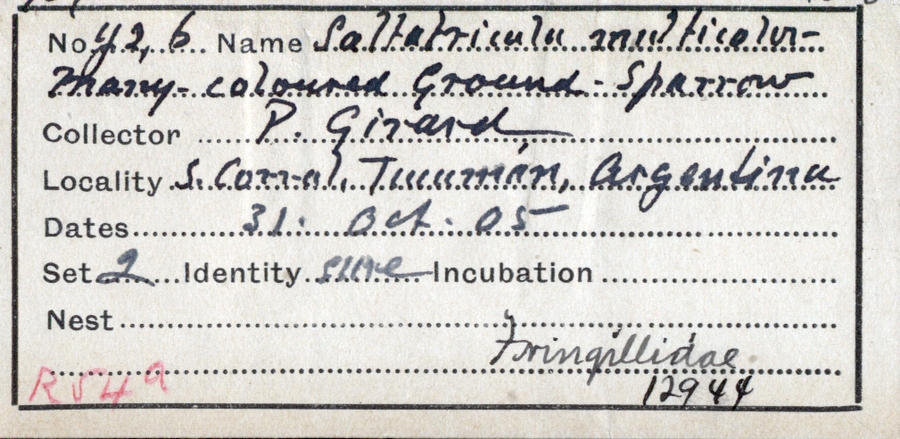 No 42, 6 Name Saltatricula multicolor-
Many-coloured Ground-Sparrow
Collector P. Girard
Locality S. Corral, Tucumán, Argentina
Dates 31. Oct. 05
Set 2 Identity sure Incubation
Nest
Fringillidae
12944
R54a